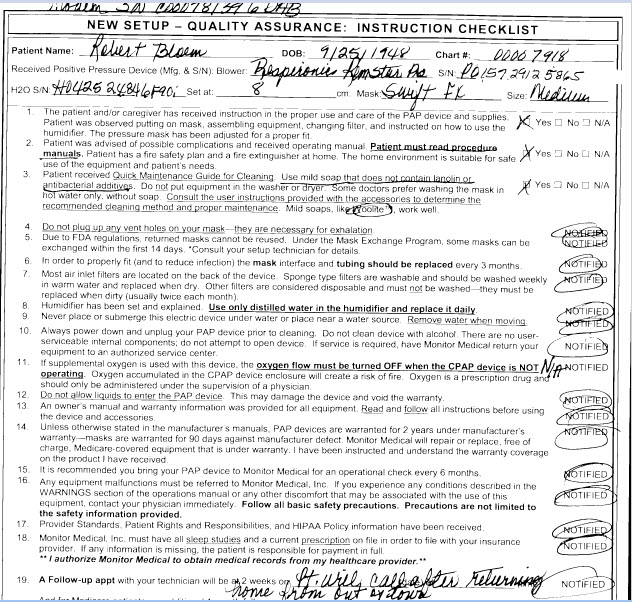 Modem S/N C00078159 6 DAB
NEW SETUP – QUALITY ASSURANCE: INSTRUCTION CHECKLIST
Patient Name: Robert Bloem DOB: 9/25/1948 Chart#: 00007918
Received Positive Pressure Device (Mfg. & S/N): Blower: Respironics Remstar Pro S/N: P0157 2912 5865
H2O S/N: H0425 24846F90; Set at: 8 cm. Mask: Swift FX Size: Medium
1. The patient and/or caregiver has received instruction in the proper use and care of the PAP device and supplies.
Patient was observed putting on mask, assembling equipment, changing filter, and instructed on how to use the
humidifier. The pressure mask has been adjusted for a proper fit. X Yes □ No □ N/A
2. Patient was advised of possible complications and received operating manual. Patient must read procedure
manuals. Patient has a fire safety plan and a fire extinguisher at home. The home environment is suitable for safe
use of the equipment and patient's needs. X Yes □ No □ N/A
3. Patient received Quick Maintenance Guide for Cleaning. Use mild soap that does not contain lanolin or
antibacterial additives. Do not put equipment in the washer or dryer. Some doctors prefer washing the mask in
hot water only, without soap. Consult the user instructions provided with the accessories to determine the
recommended cleaning method and proper maintenance. Mild soaps, like Woolite, work well. X Yes □ No □ N/A
4. Do not plug up any vent holes on your mask—they are necessary for exhalation. NOTIFIED
5. Due to FDA regulations, returned masks cannot be reused. Under the Mask Exchange Program, some masks can be
exchanged within the first 14 days. *Consult your setup technician for details. NOTIFIED
6. In order to properly fit (and to reduce infection) the mask interface and tubing should be replaced every 3 months. NOTIFIED
7. Most air inlet filters are located on the back of the device. Sponge type filters are washable and should be washed weekly
in warm water and replaced when dry. Other filters are considered disposable and must not be washed—they must be
replaced when dirty (usually twice each month). NOTIFIED
8. Humidifier has been set and explained. Use only distilled water in the humidifier and replace it daily. NOTIFIED
9. Never place or submerge this electric device under water or place near a water source. Remove water when moving. NOTIFIED
10. Always power down and unplug your PAP device prior to cleaning. Do not clean device with alcohol. There are no user-
serviceable internal components; do not attempt to open device. If service is required, have Monitor Medical return your
equipment to an authorized service center. NOTIFIED
11. If supplemental oxygen is used with this device, the oxygen flow must be turned OFF when the CPAP device is NOT
operating. Oxygen accumulated in the CPAP device enclosure will create a risk of fire. Oxygen is a prescription drug and
should only be administered under the supervision of a physician. N/A NOTIFIED
12. Do not allow liquids to enter the PAP device. This may damage the device and void the warranty. NOTIFIED
13. An owner's manual and warranty information was provided for all equipment. Read and follow all instructions before using
the device and accessories. NOTIFIED
14. Unless otherwise stated in the manufacturer's manuals, PAP devices are warranted for 2 years under manufacturer's
warranty—masks are warranted for 90 days against manufacturer defect. Monitor Medical will repair or replace, free of
charge, Medicare-covered equipment that is under warranty. I have been instructed and understand the warranty coverage
on the product I have received. NOTIFIED
15. It is recommended you bring your PAP device to Monitor Medical for an operational check every 6 months. NOTIFIED
16. Any equipment malfunctions must be referred to Monitor Medical, Inc. If you experience any conditions described in the
WARNINGS section of the operations manual or any other discomfort that may be associated with the use of this
equipment, contact your physician immediately. Follow all basic safety precautions. Precautions are not limited to
the safety information provided. NOTIFIED
17. Provider Standards, Patient Rights and Responsibilities, and HIPAA Policy information have been received. NOTIFIED
18. Monitor Medical, Inc. must have all sleep studies and a current prescription on file in order to file with your insurance
provider. If any information is missing, the patient is responsible for payment in full. NOTIFIED
** I authorize Monitor Medical to obtain medical records from my healthcare provider.**
19. A Follow-up appt with your technician will be at 2 weeks on Pt. will call after returning NOTIFIED
home from out of town